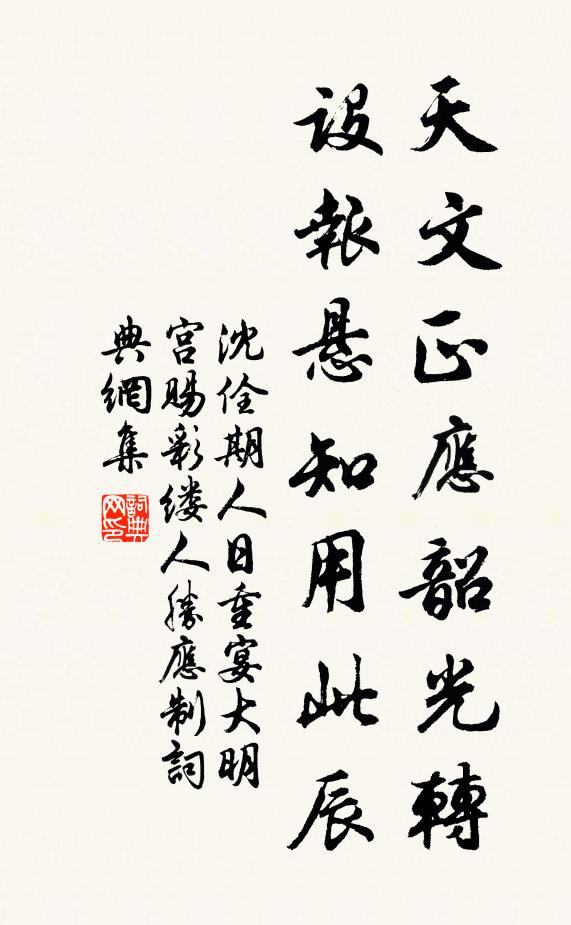 天文正應韶光轉
設報懸知用此辰
沈佺期人日重宴大明
宮賜彩縷人勝應制詞
典網集
詞典
网印